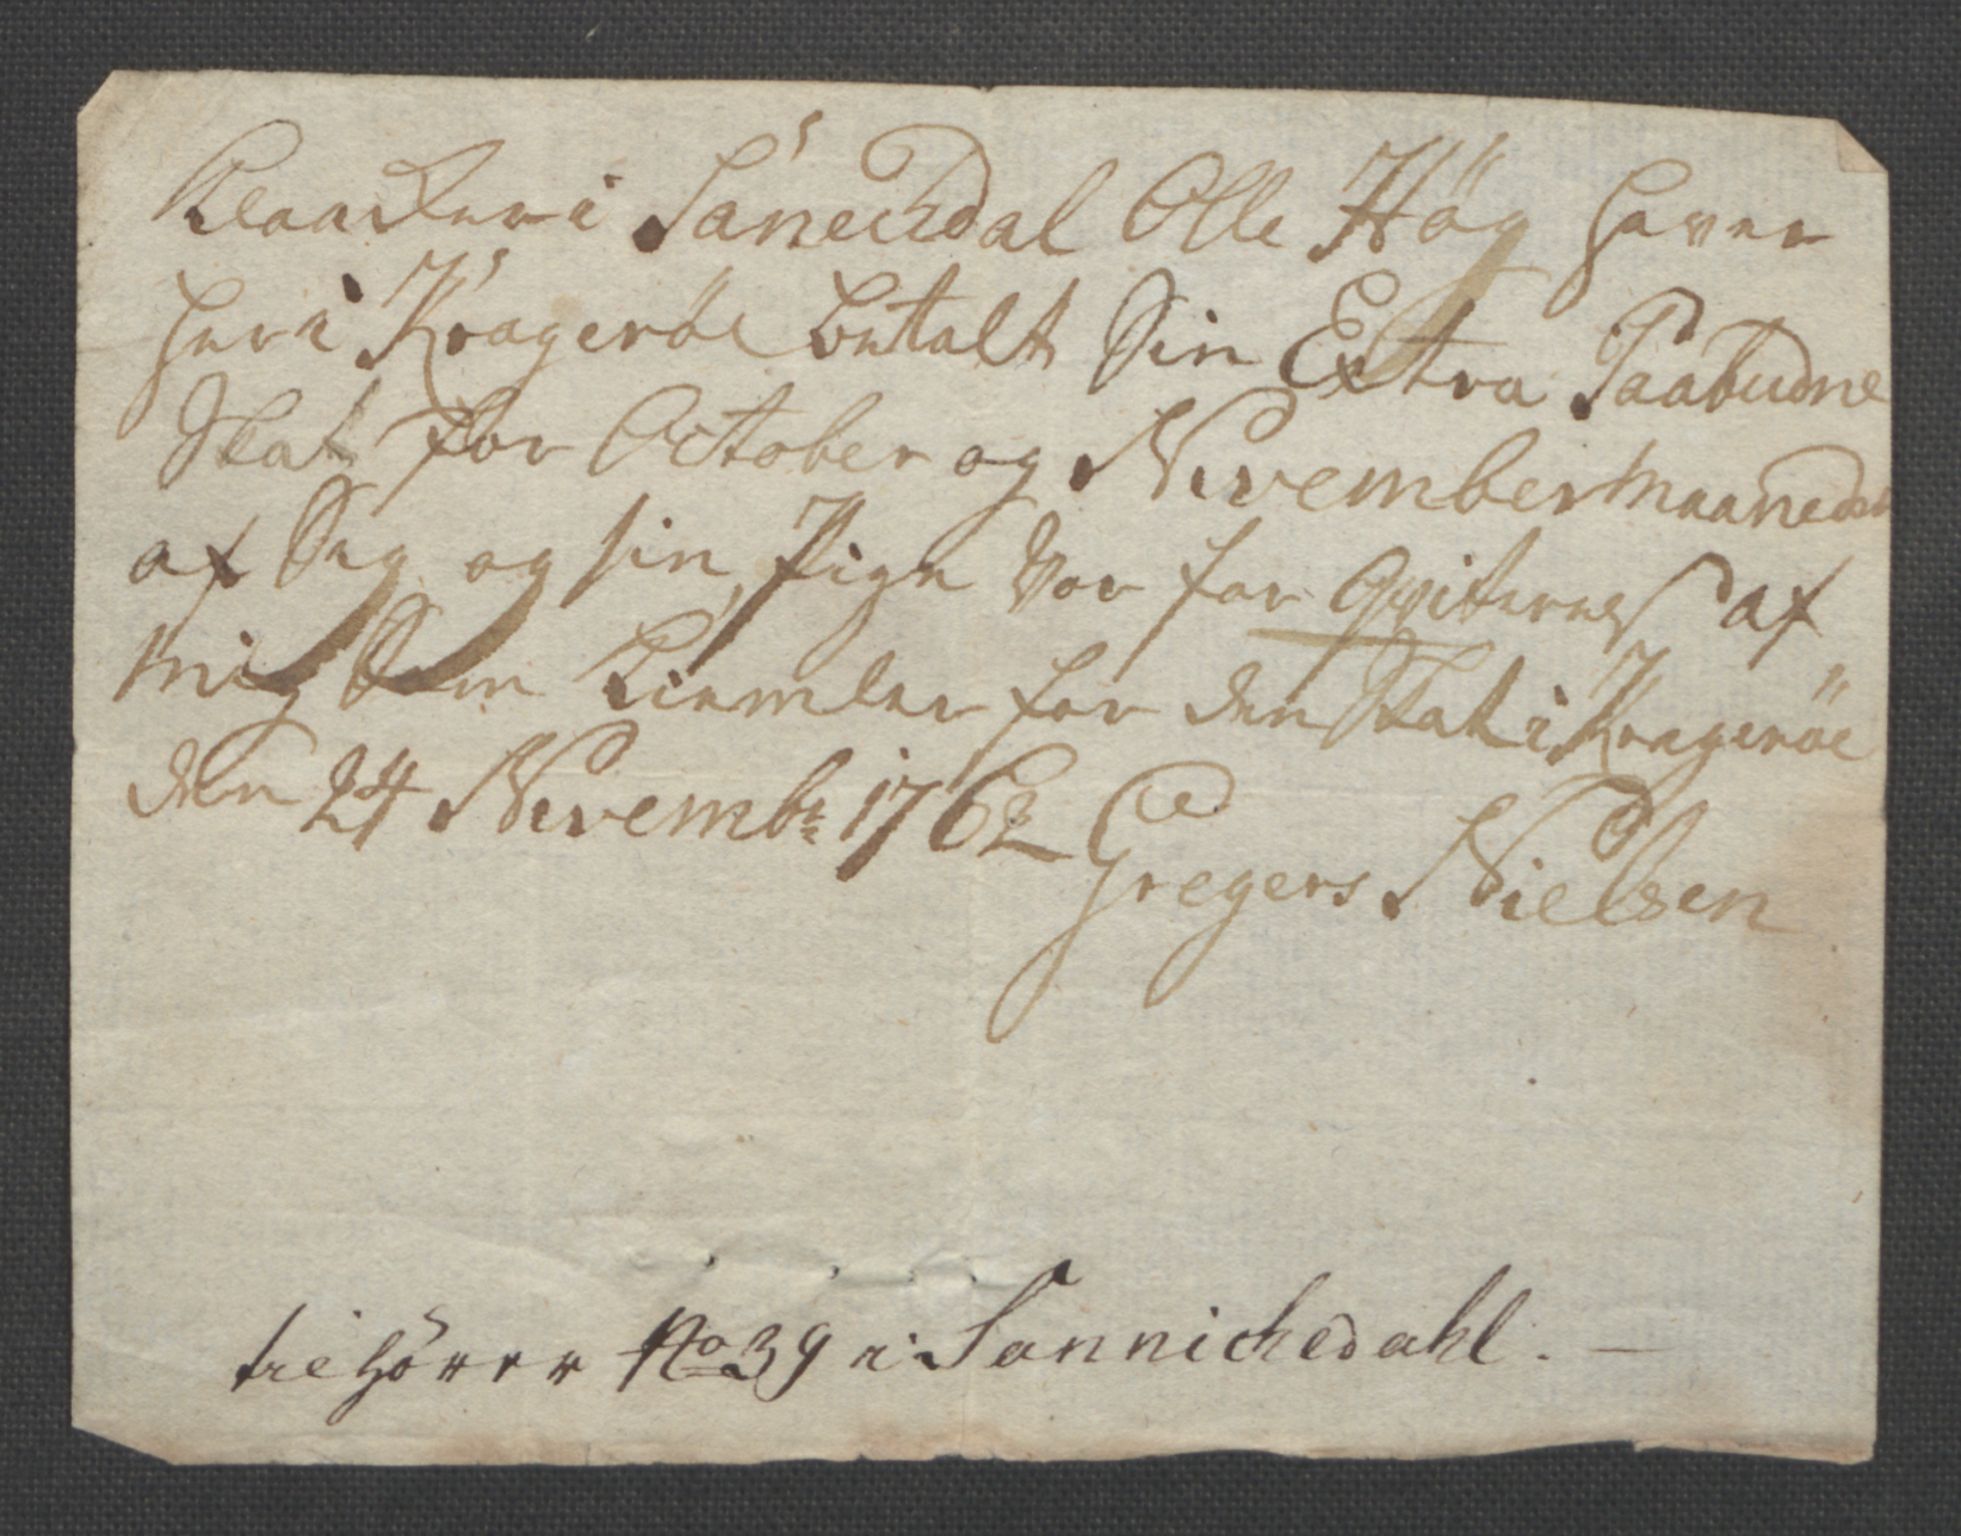 Klocker i Sanechdal Olle Hög haver
her i Krageröe betalt Sin Extra Paabudne
Skat for October og November Maaneder
af Sig og sin Pige Vor for Qviteres af
mig Som for den Skat i Krageröe
den 24 Novembr 1762 Gregers Nielsen
tilhörer No 39 i Sannichedahl. —